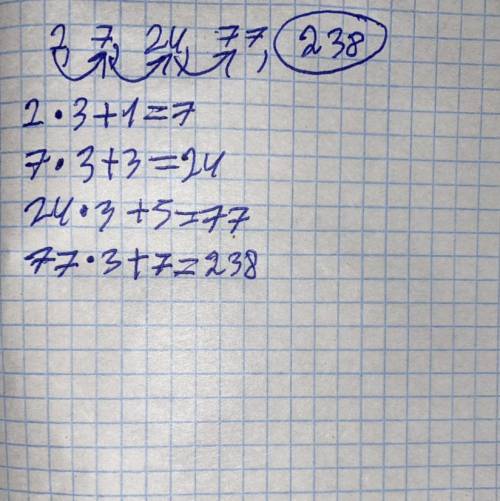 2 7, 24, 77, 238
2·3+1=7
7·3+3=24
24·3+5=77
77·3+7=238